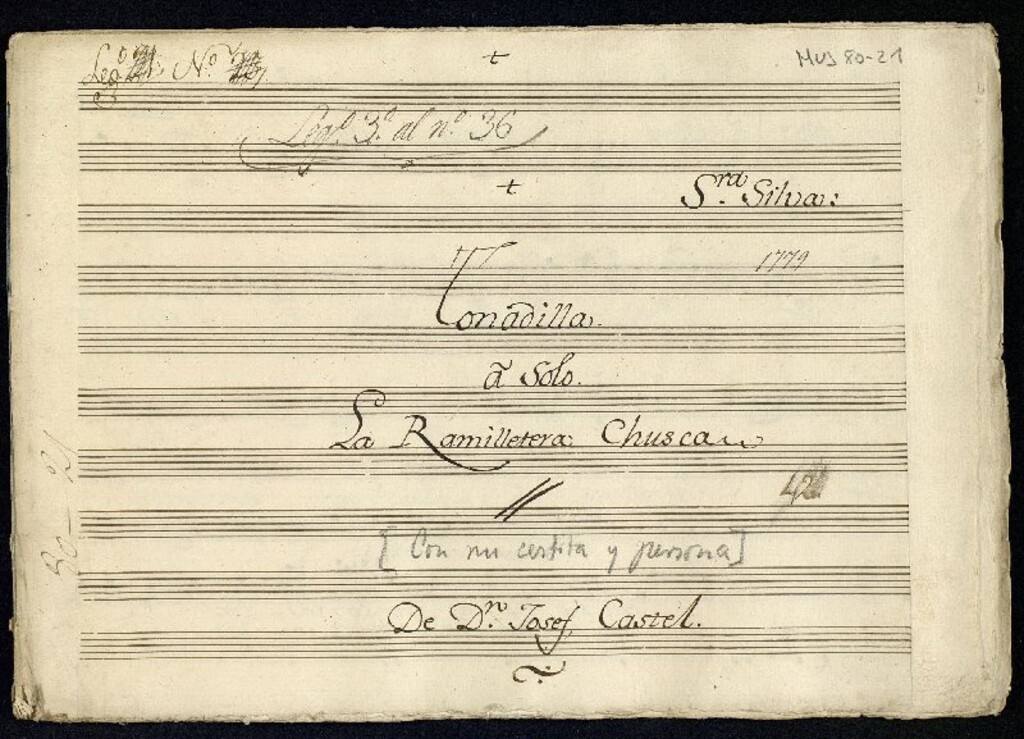 Leg.º Nº
Mus 80-21
Leg.º 3.º al n.º 36
S.ra Silva:
1779
Tonadilla.
â Solo.
La Ramilletera Chusca
42
[Con mi cestita y persona]
De D.n Josef Castel.
80-21